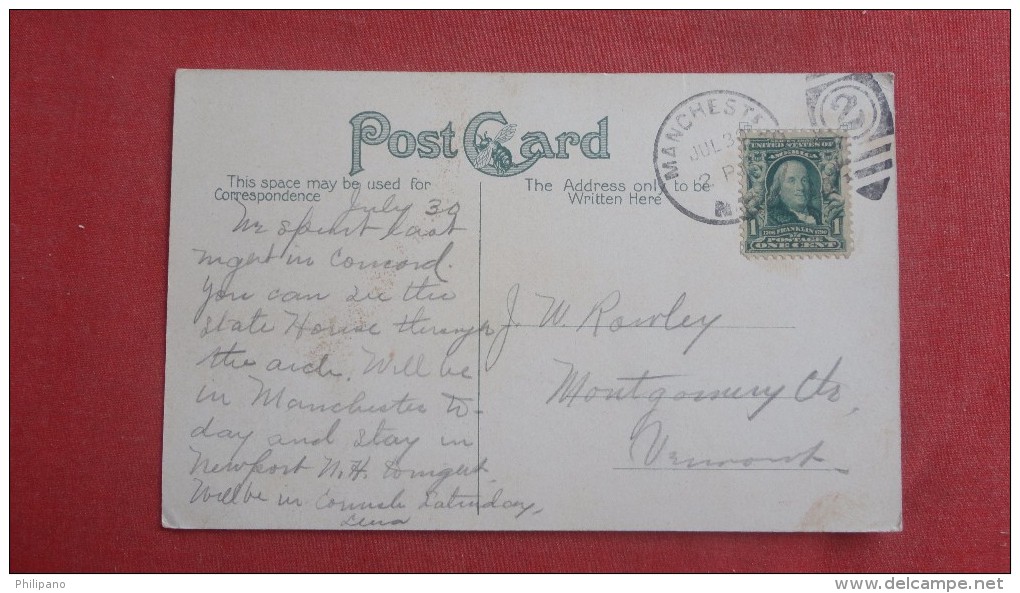 Post Card
This space may be used for
Correspondence
The Address only to be
Written Here
MANCHEST
JUL 30
2 P
N.
2
UNITED STATES OF
AMERICA
1 FRANKLIN 1
POSTAGE
ONE CENT
July 30
We spent last
night in Concord.
You can see the
State House through
the arch. Will be
in Manchester to-
day and stay in
Newport N.H. tonight.
Will be in Saturday.
Lena
J. W. Rowley
Montgomery Ctr,
Vermont
Philipano
www.delcampe.net